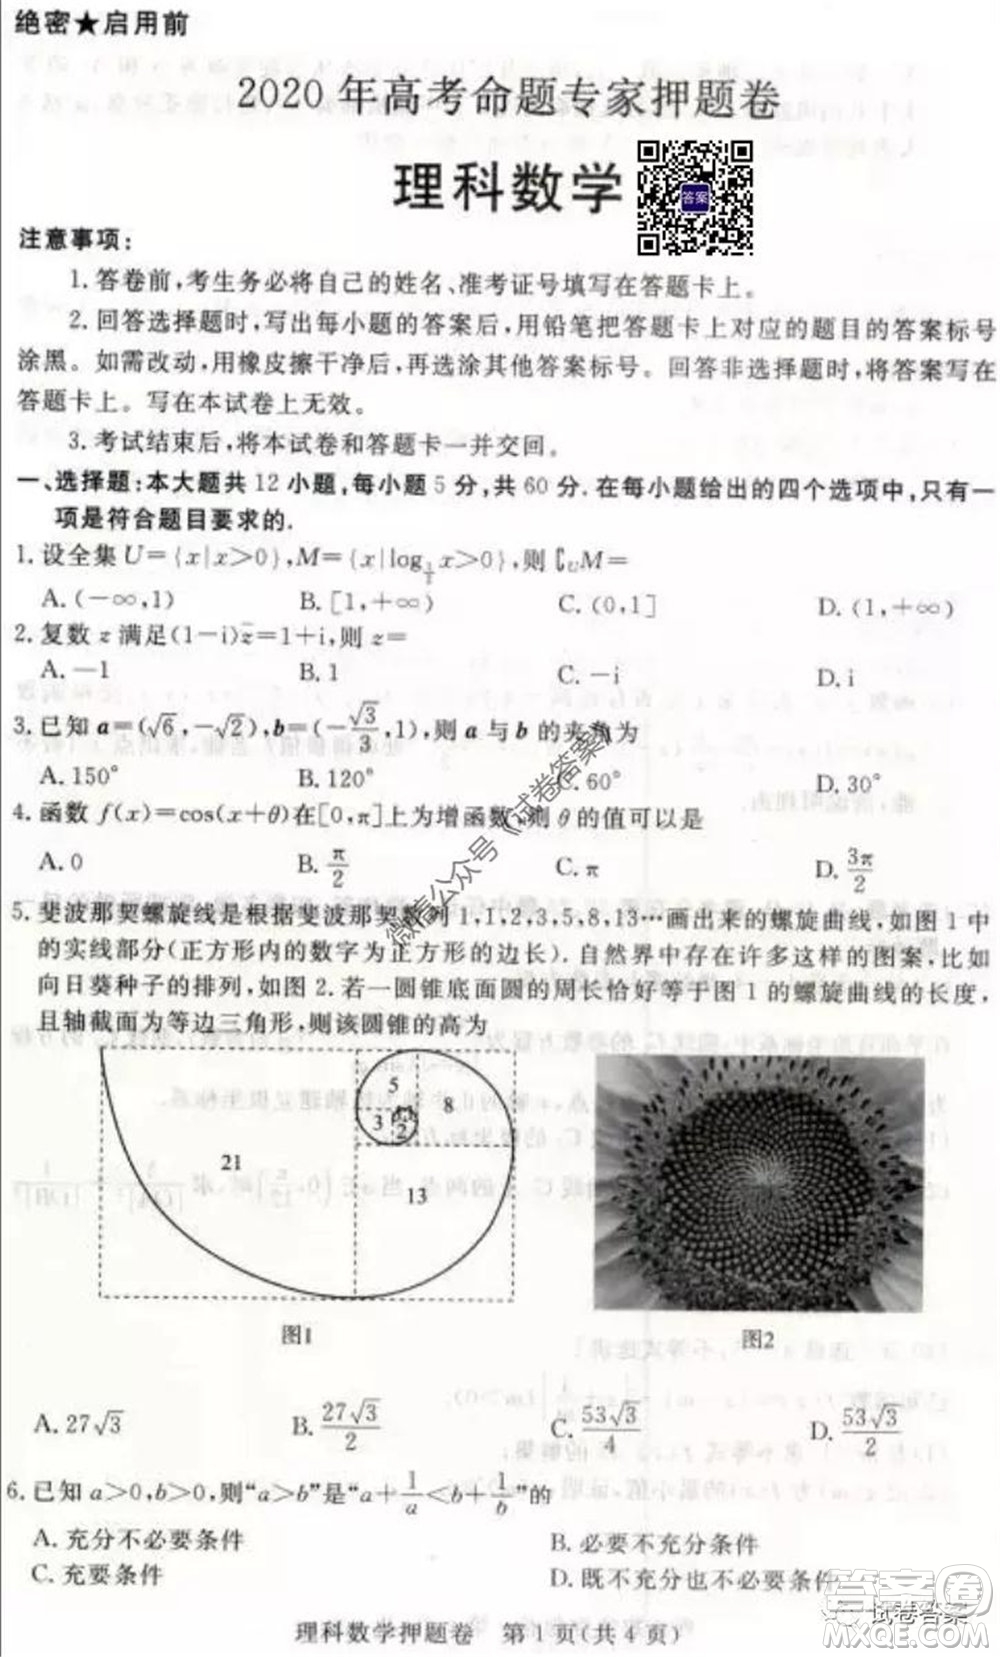 绝密★启用前
2020年高考命题专家押题卷
理科数学
答案
注意事项:
1.答卷前,考生务必将自己的姓名、准考证号填写在答题卡上。
2.回答选择题时,写出每小题的答案后,用铅笔把答题卡上对应的题目的答案标号
涂黑。如需改动,用橡皮擦干净后,再选涂其他答案标号。回答非选择题时,将答案写在
答题卡上。写在本试卷上无效。
3.考试结束后,将本试卷和答题卡一并交回。
一、选择题:本大题共12小题,每小题5分,共60分.在每小题给出的四个选项中,只有一
项是符合题目要求的.
1.设全集U={x|x>0},M={x|log_{1/2}x>0},则∁_UM=
A.(-∞,1) B.[1,+∞) C.(0,1] D.(1,+∞)
2.复数z满足(1-i)z̄=1+i,则z=
A.-1 B.1 C.-i D.i
3.已知a=(√6,-√2),b=(-√3/3,1),则a与b的夹角为
A.150° B.120° C.60° D.30°
4.函数f(x)=cos(x+θ)在[0,π]上为增函数,则θ的值可以是
A.0 B.π/2 C.π D.3π/2
5.斐波那契螺旋线是根据斐波那契数列1,1,2,3,5,8,13…画出来的螺旋曲线,如图1中
的实线部分(正方形内的数字为正方形的边长).自然界中存在许多这样的图案,比如
向日葵种子的排列,如图2.若一圆锥底面圆的周长恰好等于图1的螺旋曲线的长度,
且轴截面为等边三角形,则该圆锥的高为
5
8
3
2
21
13
图1
图2
A.27√3 B.27√3/2 C.53√3/4 D.53√3/2
6.已知a>0,b>0,则“a>b”是“a+1/a<b+1/b”的
A.充分不必要条件 B.必要不充分条件
C.充要条件 D.既不充分也不必要条件
理科数学押题卷 第1页(共4页)
微信公众号《试卷答案》
答案圈
试卷答案